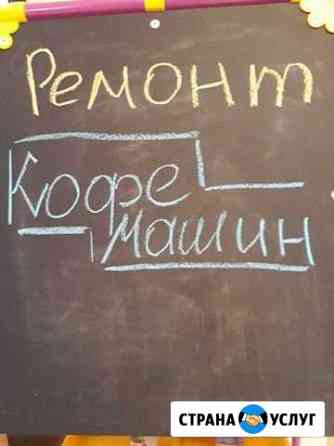 Ремонт
Кофе
машин
СТРАНА УСЛУГ